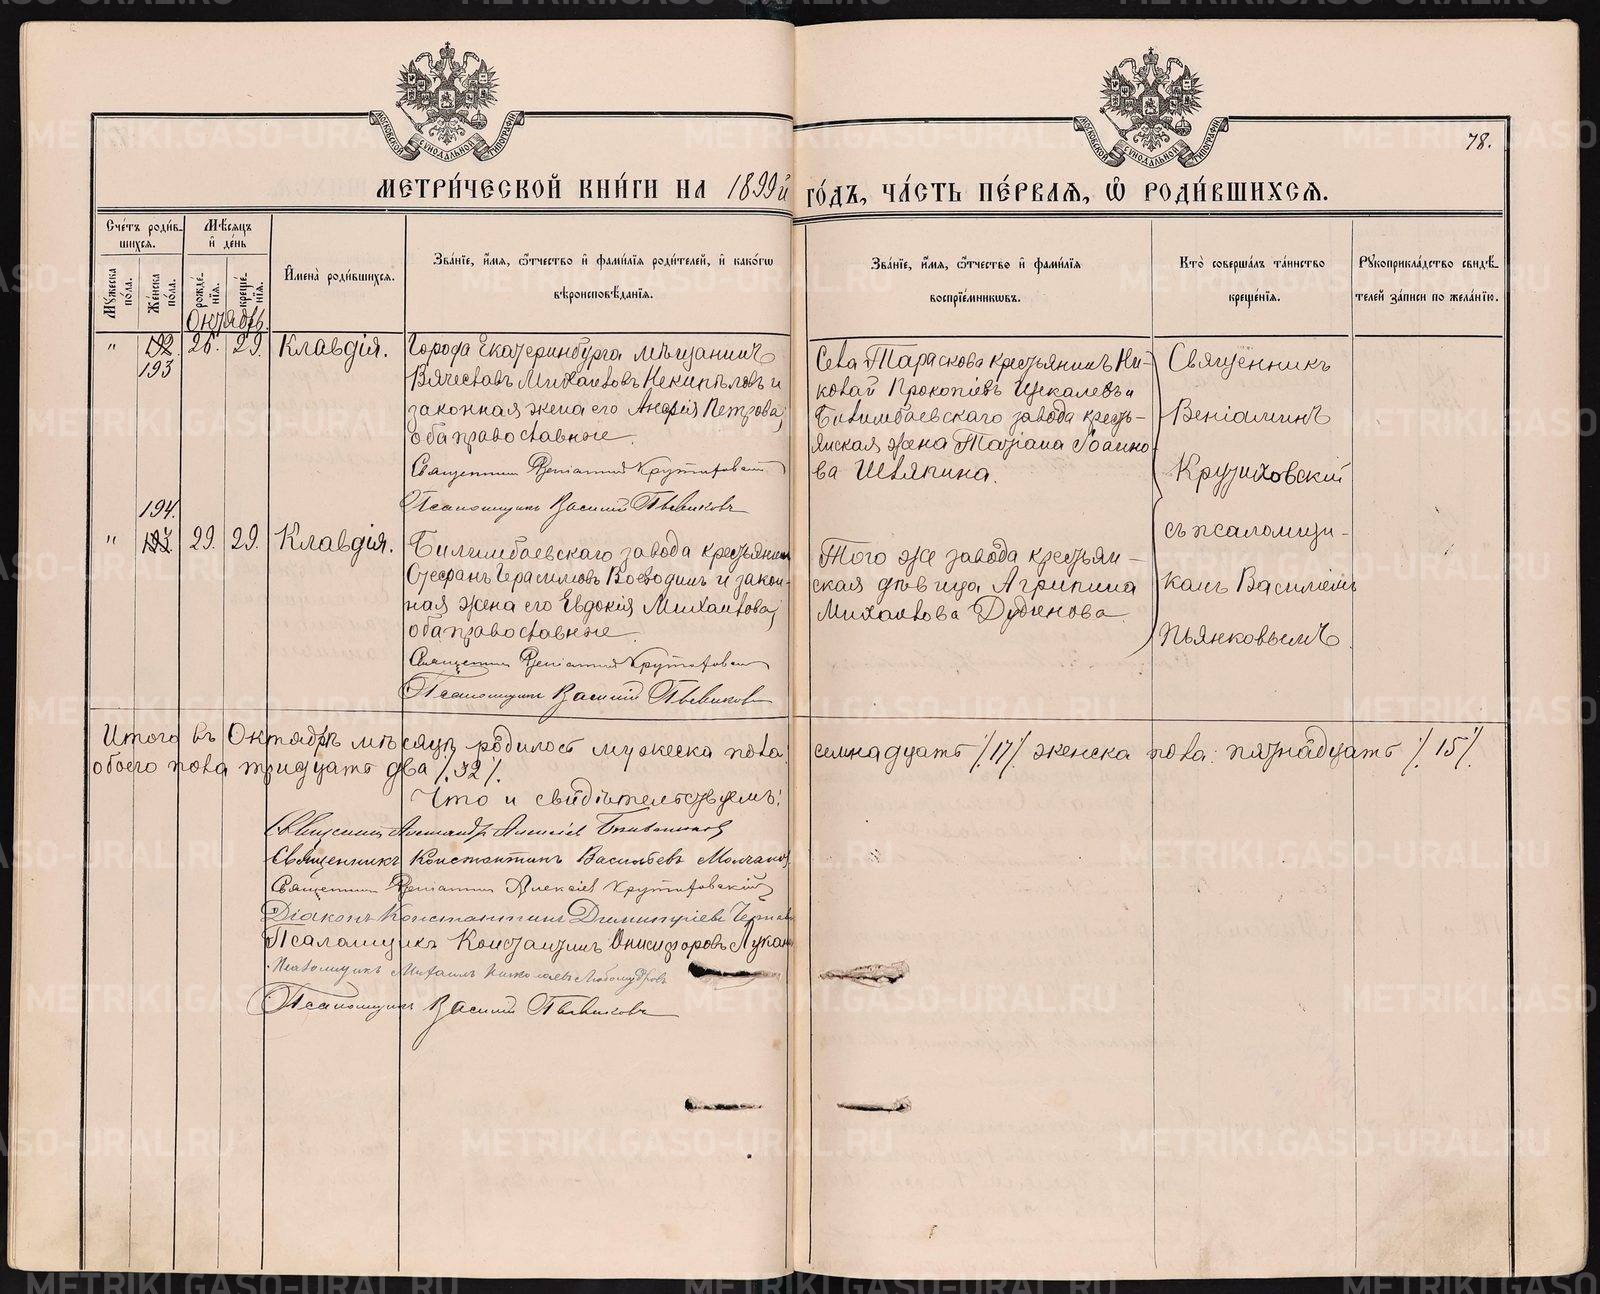 78.
МОСКОВСКОЙ СУНОДАЛЬНОЙ ТИПОГРАФИИ
МОСКОВСКОЙ СУНОДАЛЬНОЙ ТИПОГРАФИИ
МЕТРИ́ЧЕСКОЙ КНИ́ГИ НА 1899й ГО́ДЪ, ЧА́СТЬ ПЕ́РВАѦ, Ѡ҆ РОДИ́ВШИХСѦ.
Сче́тъ роди́в-
шихсѧ.
Мꙋ́жеска по́ла.
Же́нска по́ла.
Мѣ́сѧцъ
и҆ де́нь
рожде́нїѧ.
креще́нїѧ.
Октябрь.
И҆мена̀ роди́вшихсѧ.
Зва́нїе, и҆́мѧ, ѻ҆́тчество и҆ фами́лїѧ роди́телей, и҆ како́гѡ
вѣроисповѣ́данїѧ.
Зва́нїе, и҆́мѧ, ѻ҆́тчество и҆ фами́лїѧ
воспрїе́мникѡвъ.
Кто̀ соверша́лъ та́инство
креще́нїѧ.
Рꙋкоприкла́дство свидѣ́-
телей за́писи по жела́нїю.
" 192. 26. 29. Клавдія.
193
Города Екатеринбурга мѣщанинъ
Вячеславъ Михаиловъ Некипѣловъ и
законная жена его Анфія Петрова,
оба православные.
Священник Веніамин Крутиховский
Псаломщик Василий Пьянковъ
Села Тараскова крестьянинъ Ни-
колай Прокопіевъ Щекалевъ и
Билимбаевскаго завода кресть-
янская жена Татіана Іоанно-
ва Шляпина.
Священникъ
Веніаминъ
Крутиховскій
съ псаломщи-
комъ Василіемъ
Пьянковымъ.
194.
" 193. 29. 29. Клавдія.
Билимбаевскаго завода крестьянин
Стефанъ Герасимовъ Воеводинъ и закон-
ная жена его Евдокія Михаилова,
оба православные.
Священник Веніамин Крутиховский
Псаломщикъ Василий Пьянков
Того же завода крестьян-
ская дѣвица Агрипина
Михаилова Дудинова.
Итого въ Октябрѣ мѣсяцѣ родилось мужеска пола: семнадцать /17/. женска пола: пятнадцать /.15/.
обоего пола тридцать два /.32/.
Что и свидѣтельствуемъ:
Священник Александр Алексіев
Священникъ Константинъ Васильевъ Молчанов
Священник Веніамин Алексіев Крутиховскій
Діаконъ Константинъ Димитріевъ
Псаломщикъ Константинъ Онисифоровъ Лукан
Псаломщикъ Михаилъ Николаевъ Любомудровъ
Псаломщикъ Василий Пьянковъ
METRIKI.GASO-URAL.RU